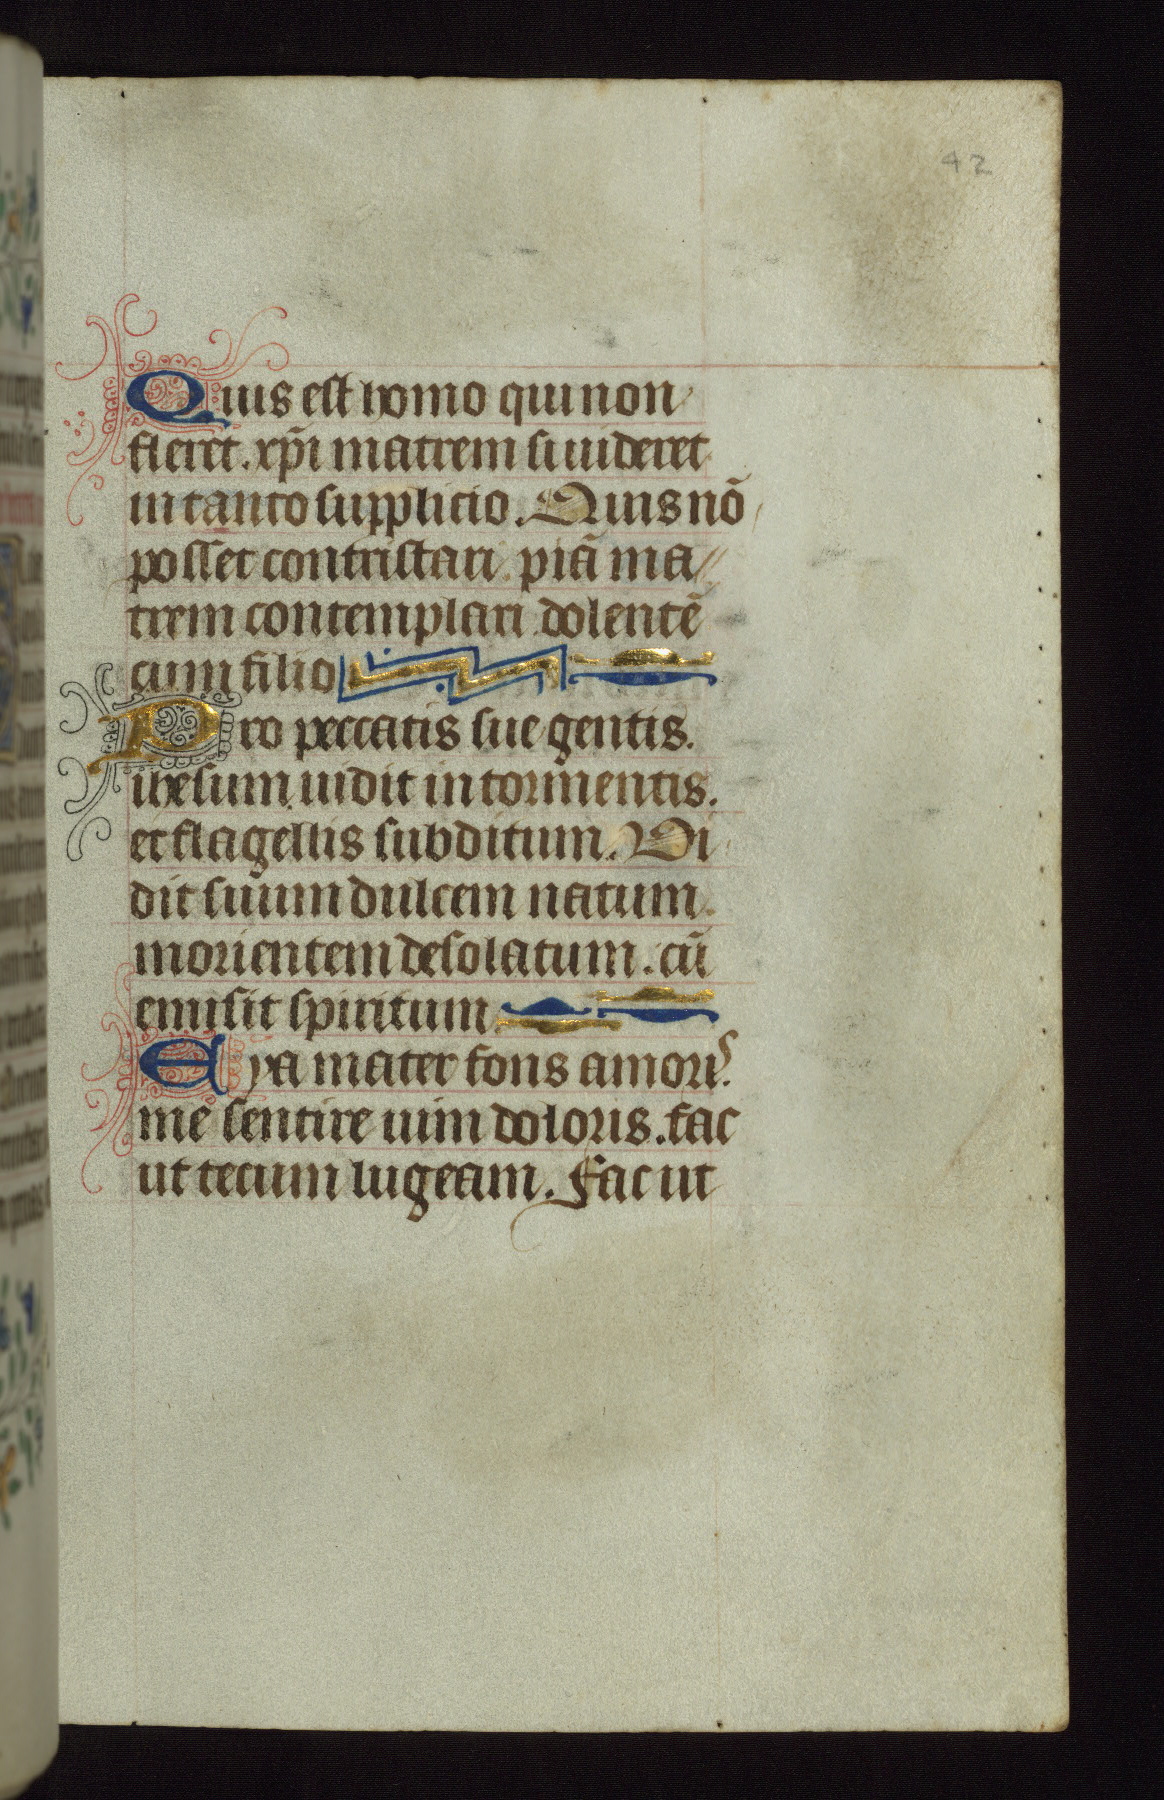 42
Quis est homo qui non
fleret. xp̄i matrem si uideret
in tanto supplicio. Quis nō
posset contristari. piā ma//
trem contemplari dolentē
cum filio
Pro peccatis sue gentis.
ihesum uidit in tormentis.
et flagellis subditum. Vi
dit suum dulcem natum.
morientem desolatum. cū
emisit spiritum
Eya mater fons amoris.
me sentire uim doloris. fac
ut tecum lugeam. Fac ut